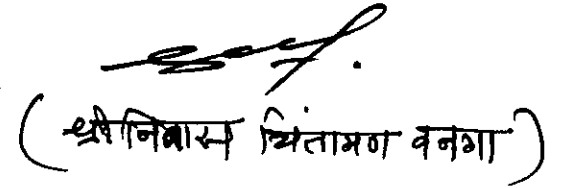 (श्रीनिवास चिंतामण वनगा)